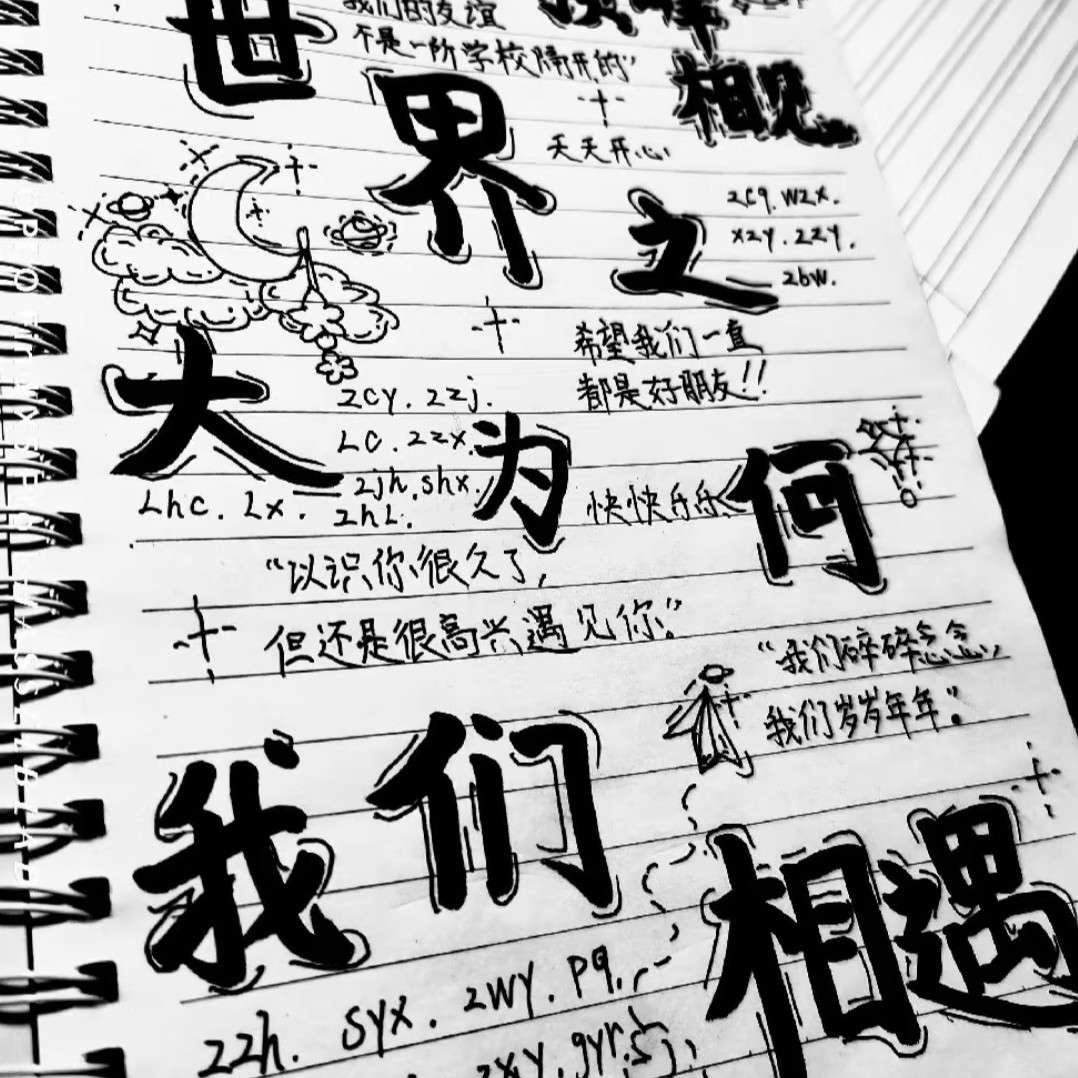 我们的友谊
不是一所学校隔开的"
世界之大为何我们相遇
顶峰
相见
天天开心
zcq. wzx.
xzy. zzy.
zbw.
希望我们一直
都是好朋友!!
zcy. zzj.
Lc. zzx.
zjh. shx.
Lhc. Lx.
zhl.
快快乐乐
"以识你很久了,
但还是很高兴遇见你."
"我们碎碎念念,
我们岁岁年年".
zzh. syx. zwy. pq.
zxy. gyr. sj.